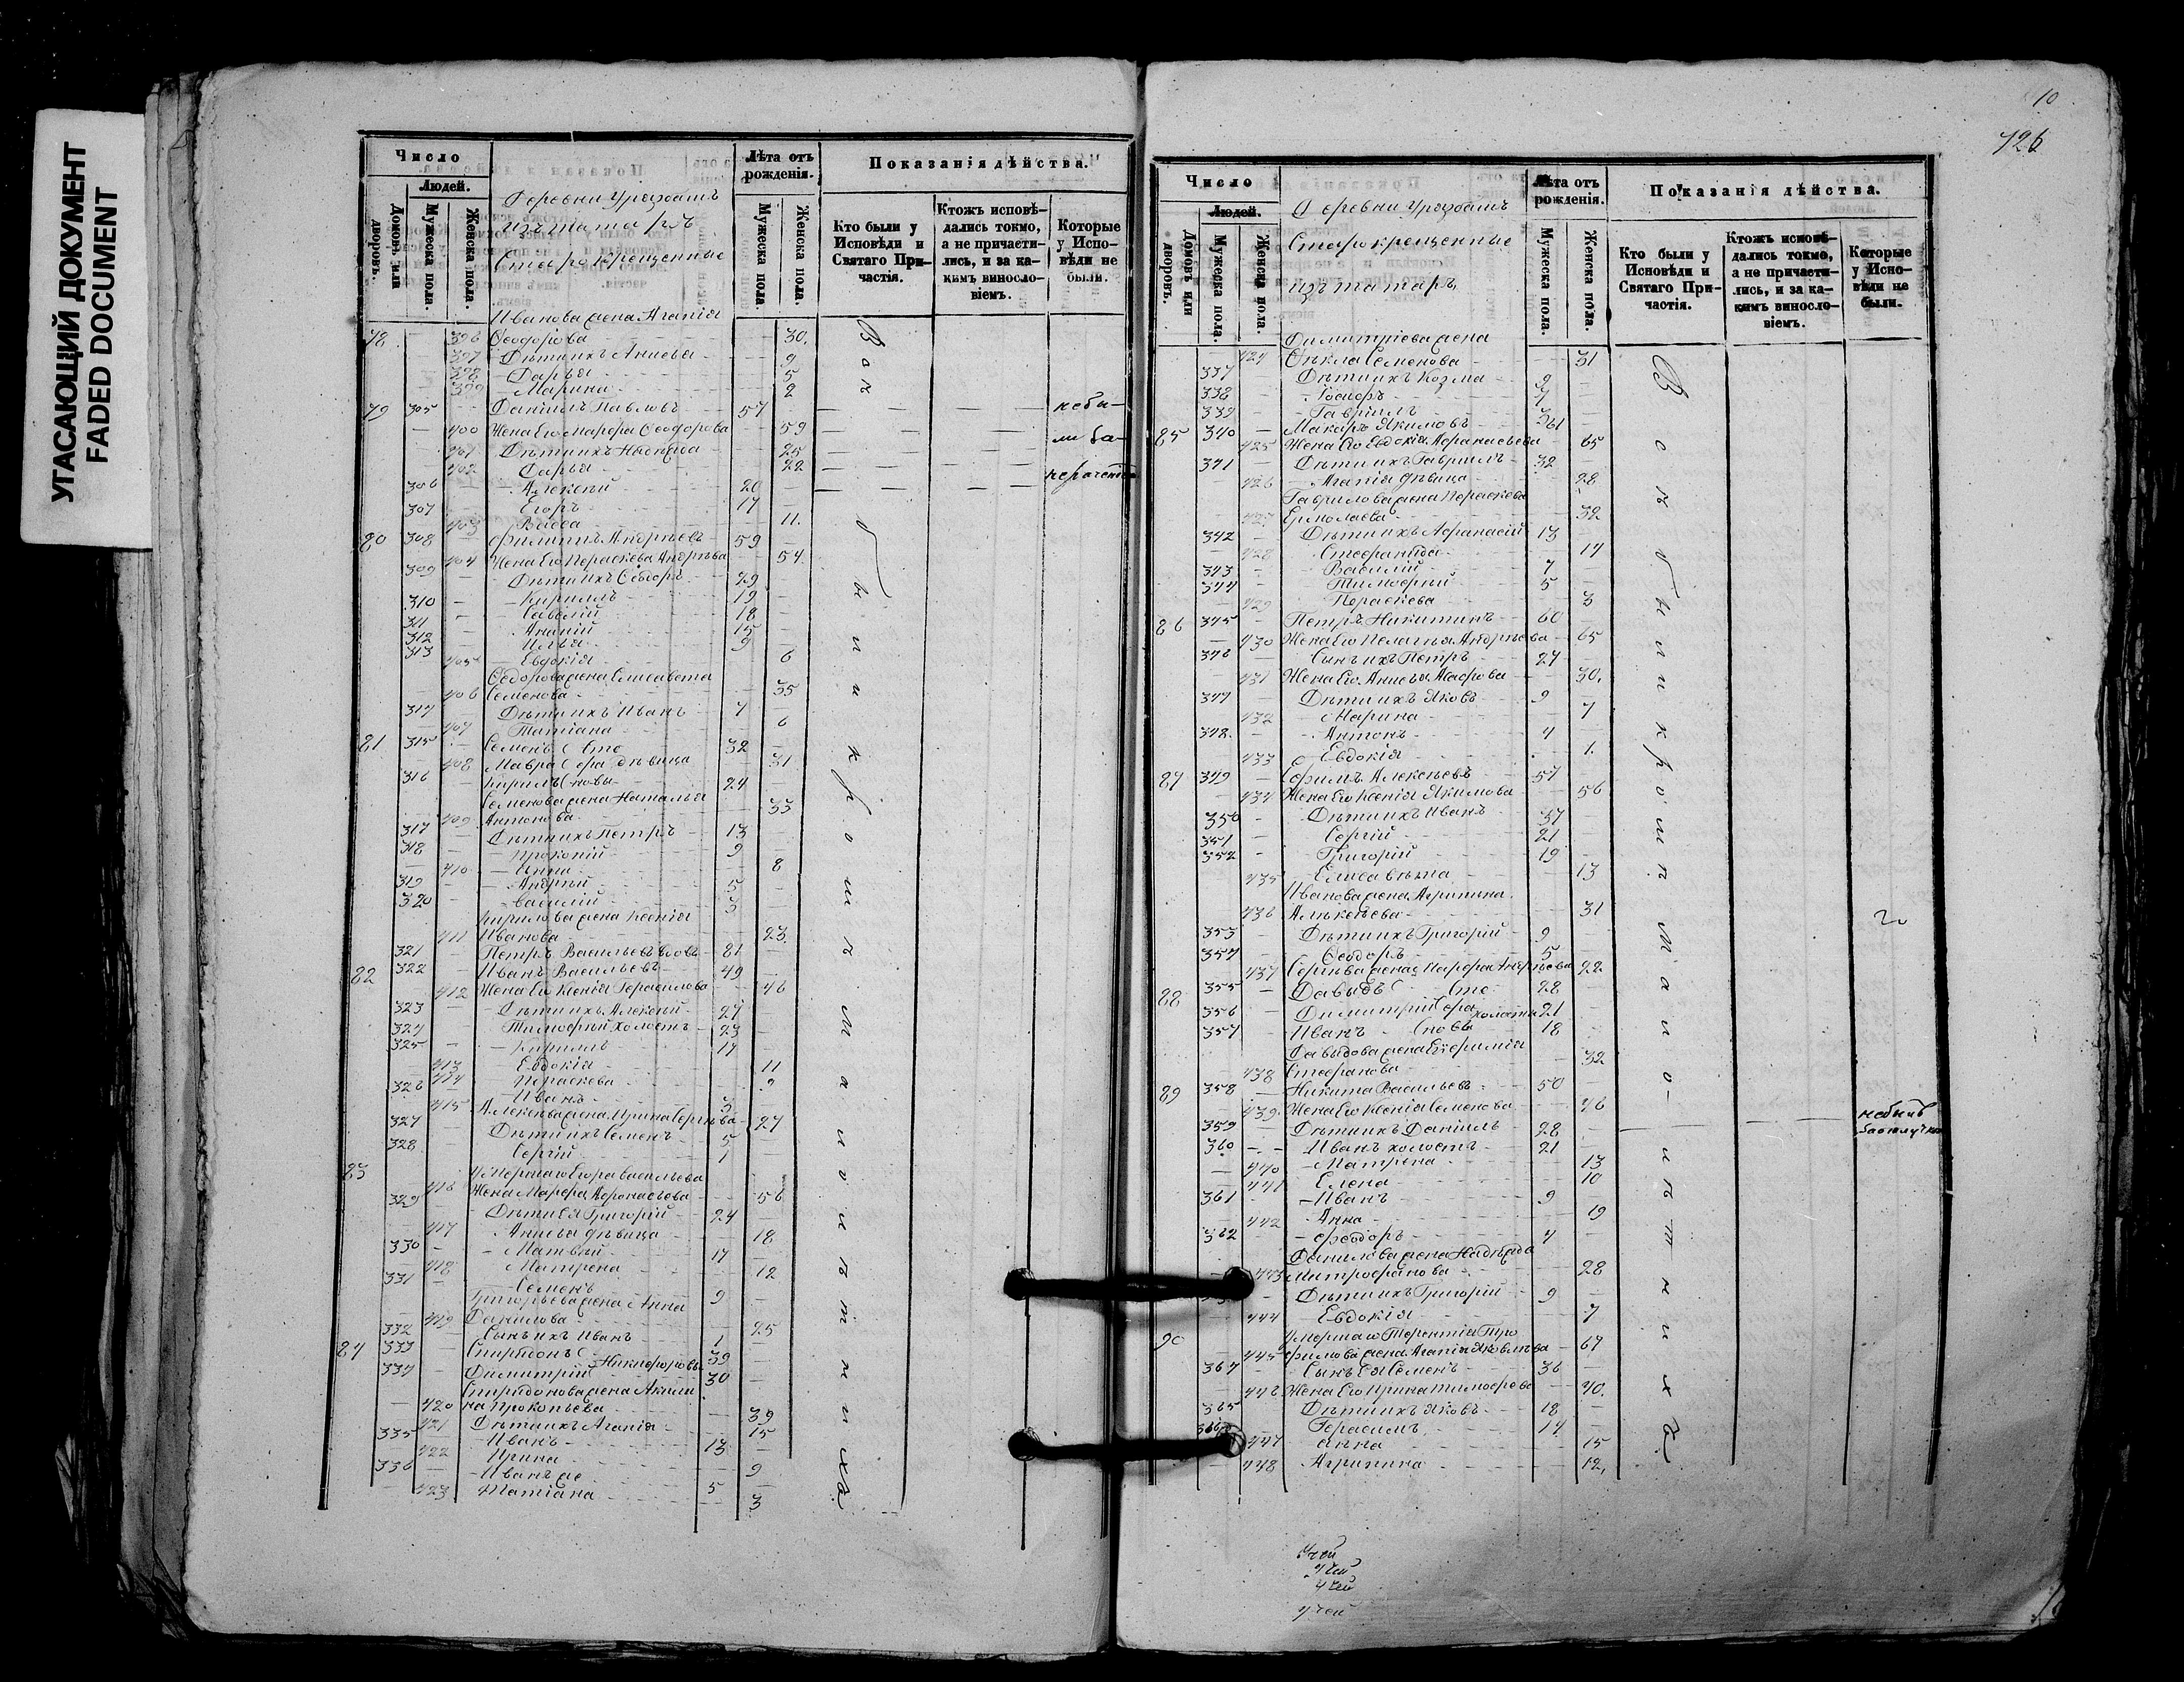 УГАСАЮЩИЙ ДОКУМЕНТ
FADED DOCUMENT
Число
Людей.
Домовъ или дворовъ.
Мужеска пола.
Женска пола.
Деревни
изъ татаръ
Старокрещенные
Лѣта отъ рожденія.
Мужеска пола
Женска пола.
Показанія дѣйства.
Кто были у Исповѣди и Святаго Причастія.
Ктожъ исповѣдались токмо, а не причастились, и за какимъ винословіемъ.
Которые у Исповѣди не были.
Иванова жена Агапія
78 396 Ѳеодорова 30.
397 Дѣти ихъ Анисья 9
398 Дарья 5
399 Марина 2
79 305 Даніилъ Павловъ 57
400 Жена Его Марѳа Ѳеодорова 59
401 Дѣти ихъ 25
402 Дарья 22
306 Алексѣй 20
307 Егоръ 17
403 11.
80 308 Филиппъ Андрѣевъ 59
404 Жена Его Пераскева Андрѣева 54.
309 Дѣти ихъ Ѳедоръ 29
310 Кириллъ 19
311 Савелій 18
312 Ананій 15
313 Илья 9
405 Евдокія 6
Ѳедорова жена Елисавета
406 Семенова 35
314 Дѣти ихъ Иванъ 7
407 Татіана 6
81 315 Семенъ 32
408 Мавра дѣвица 31
316 Кирилъ 24
Семенова жена Наталья
409 Антонова 33
317 Дѣти ихъ Петръ 13
318 Прокопій 9
410 Анна 8
319 Андрѣй 5
320 Василій 3
Кирилова жена Ксенія
411 Иванова 23.
321 Петръ Васильевъ вдовъ 81
82 322 Иванъ Васильевъ 49
412 Жена Его Ксенія Герасимова 46
323 Дѣти ихъ Алексѣй 27
324 Тимоѳѣй холостъ 23
325 Кириллъ 17
413 Евдокія 11
414 Пераскева 9
326 Иванъ 3
415 Алексѣева жена Ирина Сергѣева 27
327 Дѣти ихъ Семенъ 5
328 Сергій 1
83 Умершаго Егора Васильева
416 Жена Марѳа Аѳонасьева 56
329 Дѣти Ея Григорій 24
417 Анисья дѣвица 18
330 Матвѣй 17
418 Матрена 12
331 Семенъ 9
Григорьева жена Анна
419 Данилова 25
332 Сынъ ихъ Иванъ 1
84 333 Спиридонъ 39
334 Димитрій Никифоровы 30
Спиридонова жена Акили
420 на Прокопьева 39
421 Дѣти ихъ Агапія 15
335 Иванъ 13
422 Ирина 9
336 Иванъ же 5
423 Татіана 3
Вси обыкрошъ
неби-
ли за
нераченіемъ
10
126
Число
Людей.
Домовъ или дворовъ.
Мужеска пола.
Женска пола.
Деревни
Старокрещенные
изъ татаръ
Лѣта отъ рожденія.
Мужеска пола.
Женска пола.
Показанія дѣйства.
Кто были у Исповѣди и Святаго Причастія.
Ктожъ исповѣдались токмо, а не причастились, и за какимъ винословіемъ.
Которые у Исповѣди не были.
Димитріева жена
424 Ѳекла Семенова 31
337 Дѣти ихъ Козма 9
338 7
339 Гавріилъ 3
85 340 Макаръ Якимовъ 61
425 Жена Его Евдокія Аѳанасьева 65
341 Дѣти ихъ Гавріилъ 32
426 Агапія дѣвица 28
Гаврилова жена Пераскева
427 Ермолаева 32
342 Дѣти ихъ Аѳанасій 13
428 Стефанида 14
343 Василій 7
344 Тимоѳѣй 5
429 Пераскева 3
86 345 Петръ Никитинъ 60
430 Жена Его Пелагея Андрѣева 65
346 Сынъ ихъ Петръ 27
431 Жена Его Анисья 30.
347 Дѣти ихъ Яковъ 9
432 Марина 7
348. Антонъ 4
433 Евдокія 1.
87 349 Ефимъ Алексѣевъ 57
434 Жена Его Ксенія Якимова 56
350 Дѣти ихъ Иванъ 37
351 Сергій 21
352 Григорій 19
435 Елисавета 13
Иванова жена Агрипина
436 Алексѣева 31
353 Дѣти ихъ Григорій 9
354 Ѳеодоръ 5
437 Сергѣева жена Марѳа Андрѣева 22
88 355 Давыдъ 28
356 Димитрій холосты 21
357 Иванъ 18
Давыдова жена Евфимія
438 Стефанова 32
89 358 Никита Васильевъ 50
439. Жена Его Ксенія Семенова 46
359 Дѣти ихъ Даніилъ 28
360 Иванъ холостъ 21
440 Матрена 13
441 Елена 10
361 Иванъ 9
442 Анна 19
362 Ѳеодоръ 4
Данилова жена Надежда
443 Митрофанова 28
Дѣти ихъ Григорій 9
444 Евдокія 7
90 Умершаго Терентія Тро
445 фимова жена Агапія Яковлева 67
364 Сынъ Ея Семенъ 36
446 Жена Его Ирина Тимоѳеева 40.
365 Дѣти ихъ Яковъ 18
366 Герасимъ 14
447 Анна 15
448 Агрипина 12,
небылъ
за отлучкою